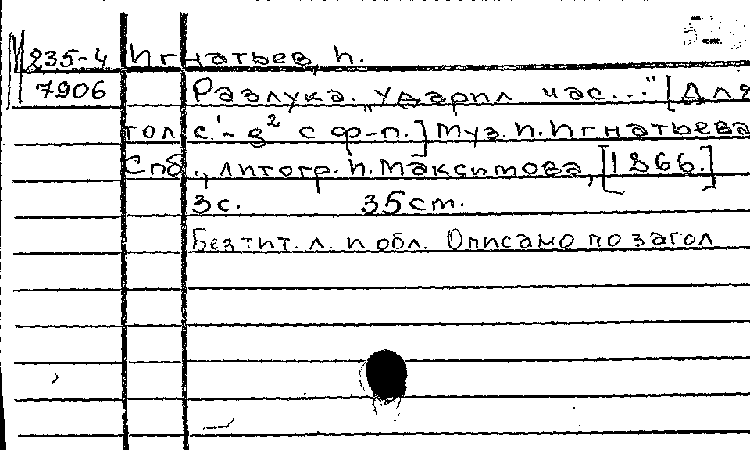 М 235-4 Игнатьев, И.
7906 Разлука. „Ударил час..." [Для
гол. c¹-g² с ф-п.] Муз. И. Игнатьева
Спб., литогр. И. Максимова, [1866.]
3с. 35см.
Без тит. л. и обл. Описано по загол